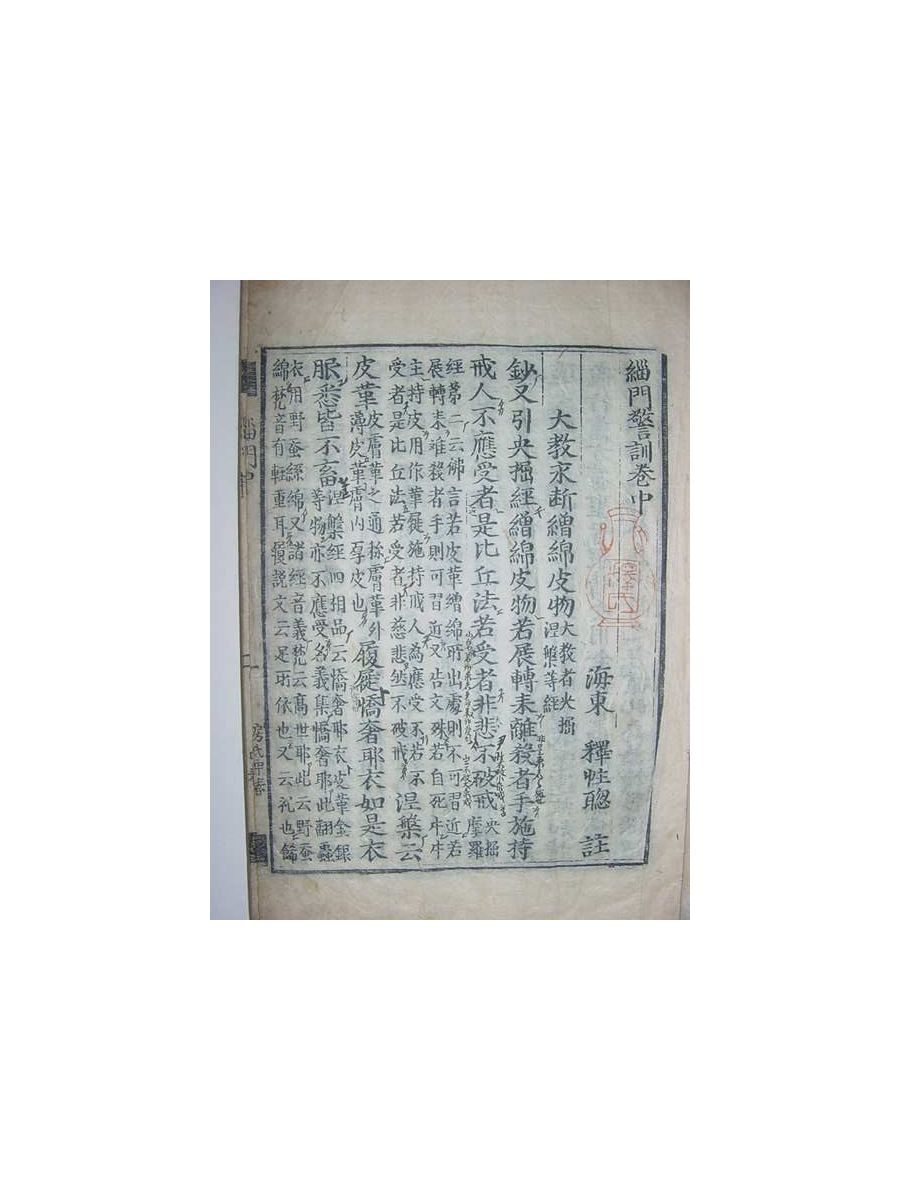 緇門警訓卷中
海東 釋性聰 註
大教永断繒綿皮物 大教者央掘
涅槃等経
鈔又引央掘經繒綿皮物若展轉来離殺者手施持
戒人不應受者是比丘法若受者非悲不破戒 央掘
摩羅
經第二云佛言若皮革繒綿所出處則不可習近若
展轉来離殺者手則可習近又告文殊若自死牛牛
主持皮用作革屣施持戒人為應受不若不
受者是比丘法若受者非慈悲然不破戒
涅槃云
皮革 皮膚革之通稱膚革外
薄皮革膚内厚皮也
履屣憍奢耶衣如是衣
服悉皆不畜 涅槃經四相品云憍奢耶衣皮革金銀
等物亦不應受名義集憍奢耶此翻蟲
衣用野蚕絲綿又諸經音義梵云高世耶此云野蚕
綿梵音有軽重耳履説文云足所依也又云礼也飾
緇門中
二